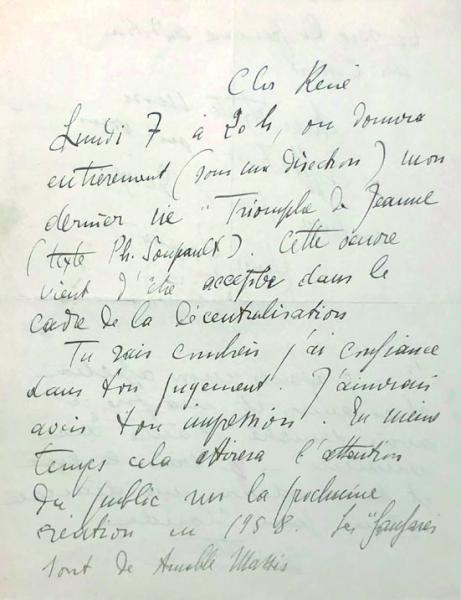 Cher René
Lundi 7 à 20 h, on donnera
entièrement (sous ma direction) mon
dernier né "Triomphe de Jeanne
(texte Ph. Soupault). Cette oeuvre
vient d'être acceptée dans le
cadre de la Décentralisation
Tu sais combien j'ai confiance
dans ton jugement. J'aimerais
avoir ton impression. En même
temps cela attirera l'attention
du public sur la prochaine
création en 1958. Les "fanfares
sont de Amable Massis